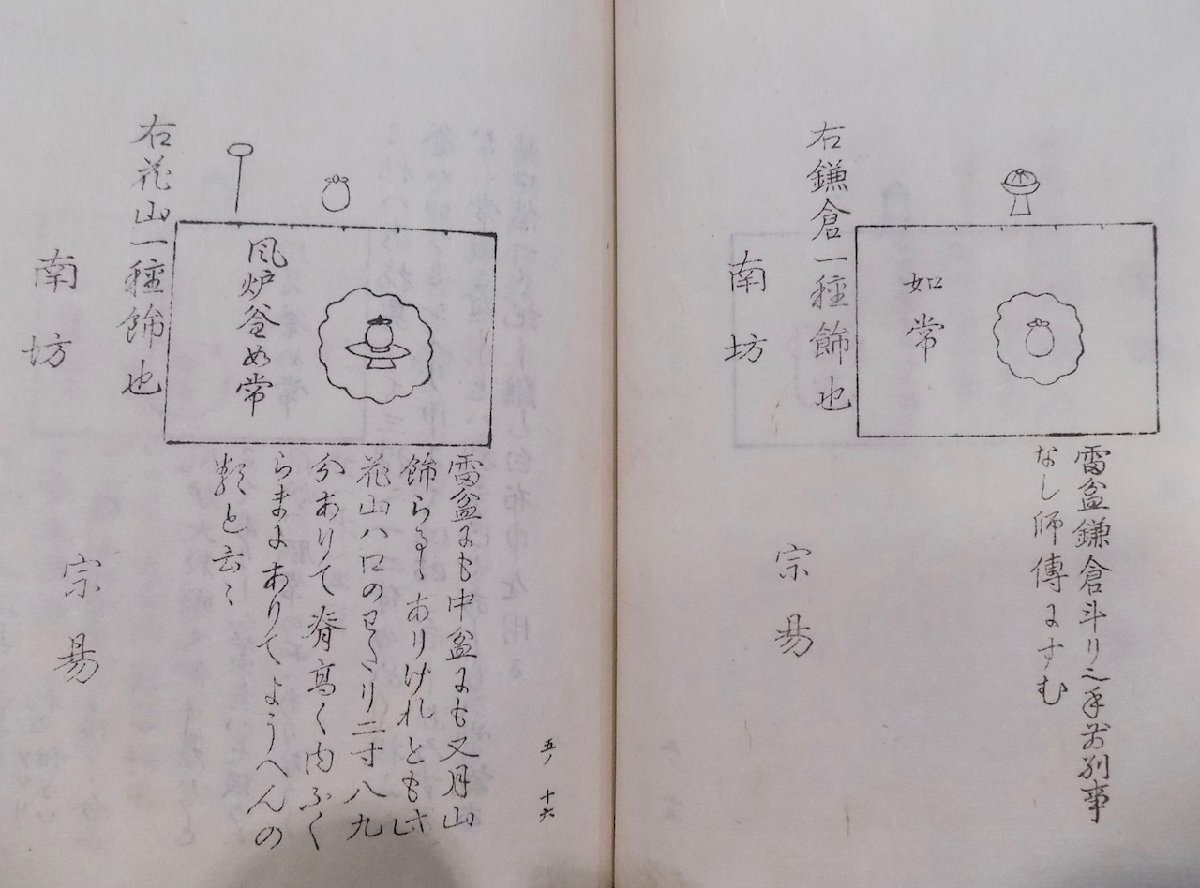 如常
雷盆鎌倉斗リ之手前別事
なし師傳にすむ
右鎌倉一種飾也
南坊
宗易
五ノ十六
風炉釜如常
雷盆にも中盆にも又月山
飾らるゝありけれとも此
花山ハ口のわたり二寸八九
分ありて脊高く内ふく
らまにありてようへんの
類と云〻
右花山一種飾也
南坊
宗易